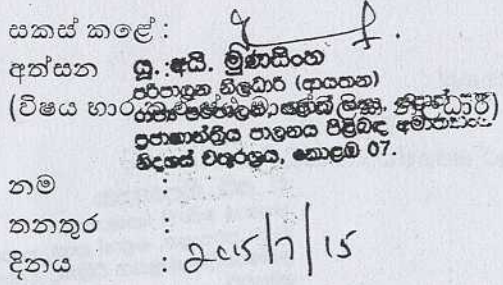 සකස් කළේ :
අත්සන : යූ. අයි. මුණසිංහ
පරිපාලන නිලධාරි (ආයතන)
(විෂය භාර නිලධාරී)
ප්‍රජාතන්ත්‍රීය පාලනය පිළිබඳ අමාත්‍යාංශය
නිදහස් චතුරශ්‍රය, කොළඹ 07.
නම :
තනතුර :
දිනය : 2015/7/15